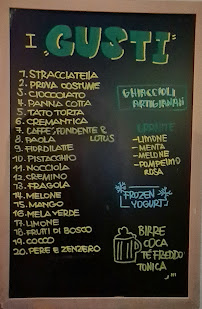 I GUSTI
1. STRACCIATELLA
2. PROVA COSTUME
3. CIOCCOLATO
4. PANNA COTTA
5. TATO TORTA
6. CREMANTICA
7. CAFFÈ/FONDENTE &
8. PAOLA LOTUS
9. FIORDILATTE
10. PISTACCHIO
11. NOCCIOLA
12. CREMINO
13. FRAGOLA
14. MELONE
15. MANGO
16. MELA VERDE
17. LIMONE
18. FRUTTI DI BOSCO
19. COCCO
20. PERE E ZENZERO
GHIACCIOLI
ARTIGIANALI
GRANITE
- LIMONE
- MENTA
- MELONE
- POMPELMO
ROSA
FROZEN
YOGURT
BIRRE
COCA
TÉ FREDDO
TONICA